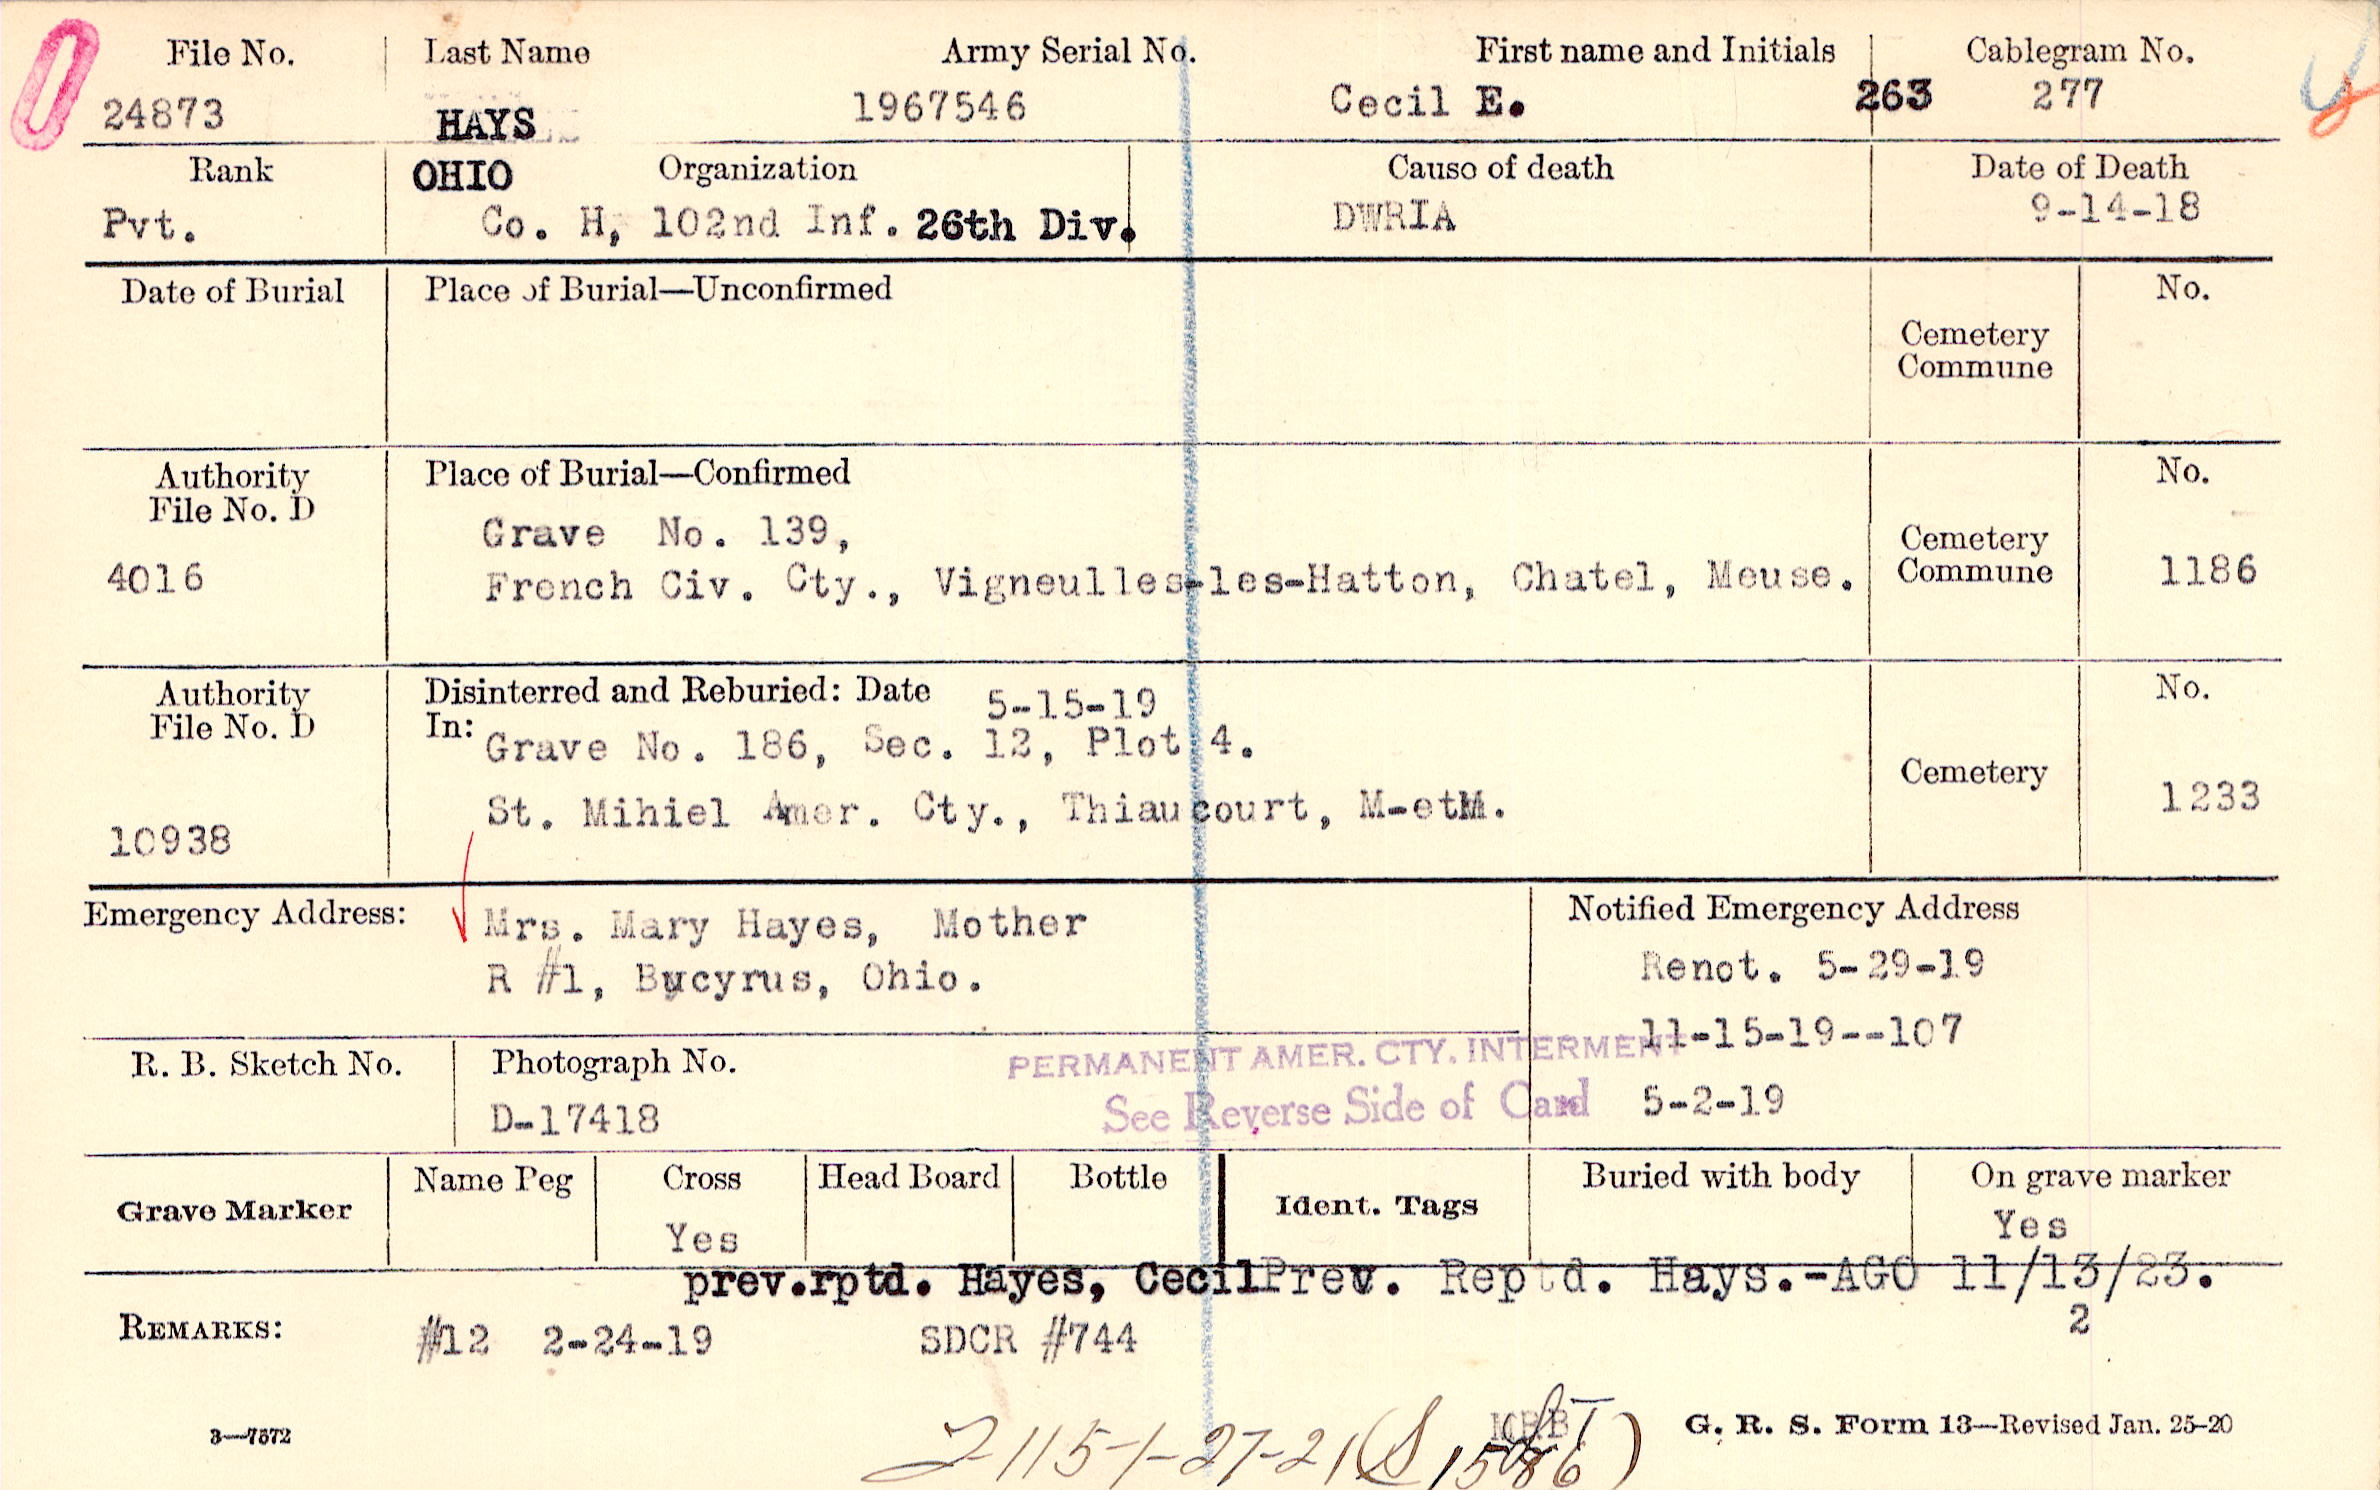 File No. Last Name Army Serial No. First name and Initials Cablegram No.
24873 HAYS 1967546 Cecil E. 263 277
Rank OHIO Organization Cause of death Date of Death
Pvt. Co. H, 102nd Inf. 26th Div. DWRIA 9-14-18
Date of Burial Place of Burial—Unconfirmed No.
Cemetery
Commune
Authority Place of Burial—Confirmed No.
File No. D
Grave No. 139,
Cemetery
4016 French Civ. Cty., Vigneulles-les-Hatton, Chatel, Meuse. Commune 1186
Authority Disinterred and Reburied: Date 5-15-19 No.
File No. D In: Grave No. 186, Sec. 12, Plot 4.
Cemetery
10938 St. Mihiel Amer. Cty., Thiaucourt, M-etM. 1233
Emergency Address: Mrs. Mary Hayes, Mother Notified Emergency Address
R #1, Bucyrus, Ohio. Renot. 5-29-19
11-15-19--107
R. B. Sketch No. Photograph No. PERMANENT AMER. CTY. INTERMENT
D-17418 See Reverse Side of Card 5-2-19
Grave Marker Name Peg Cross Head Board Bottle Ident. Tags Buried with body On grave marker
Yes Yes
prev.rptd. Hayes, Cecil Prev. Reptd. Hays.-AGO 11/13/23.
2
REMARKS: #12 2-24-19 SDCR #744
3—7572 G. R. S. Form 13—Revised Jan. 25-20